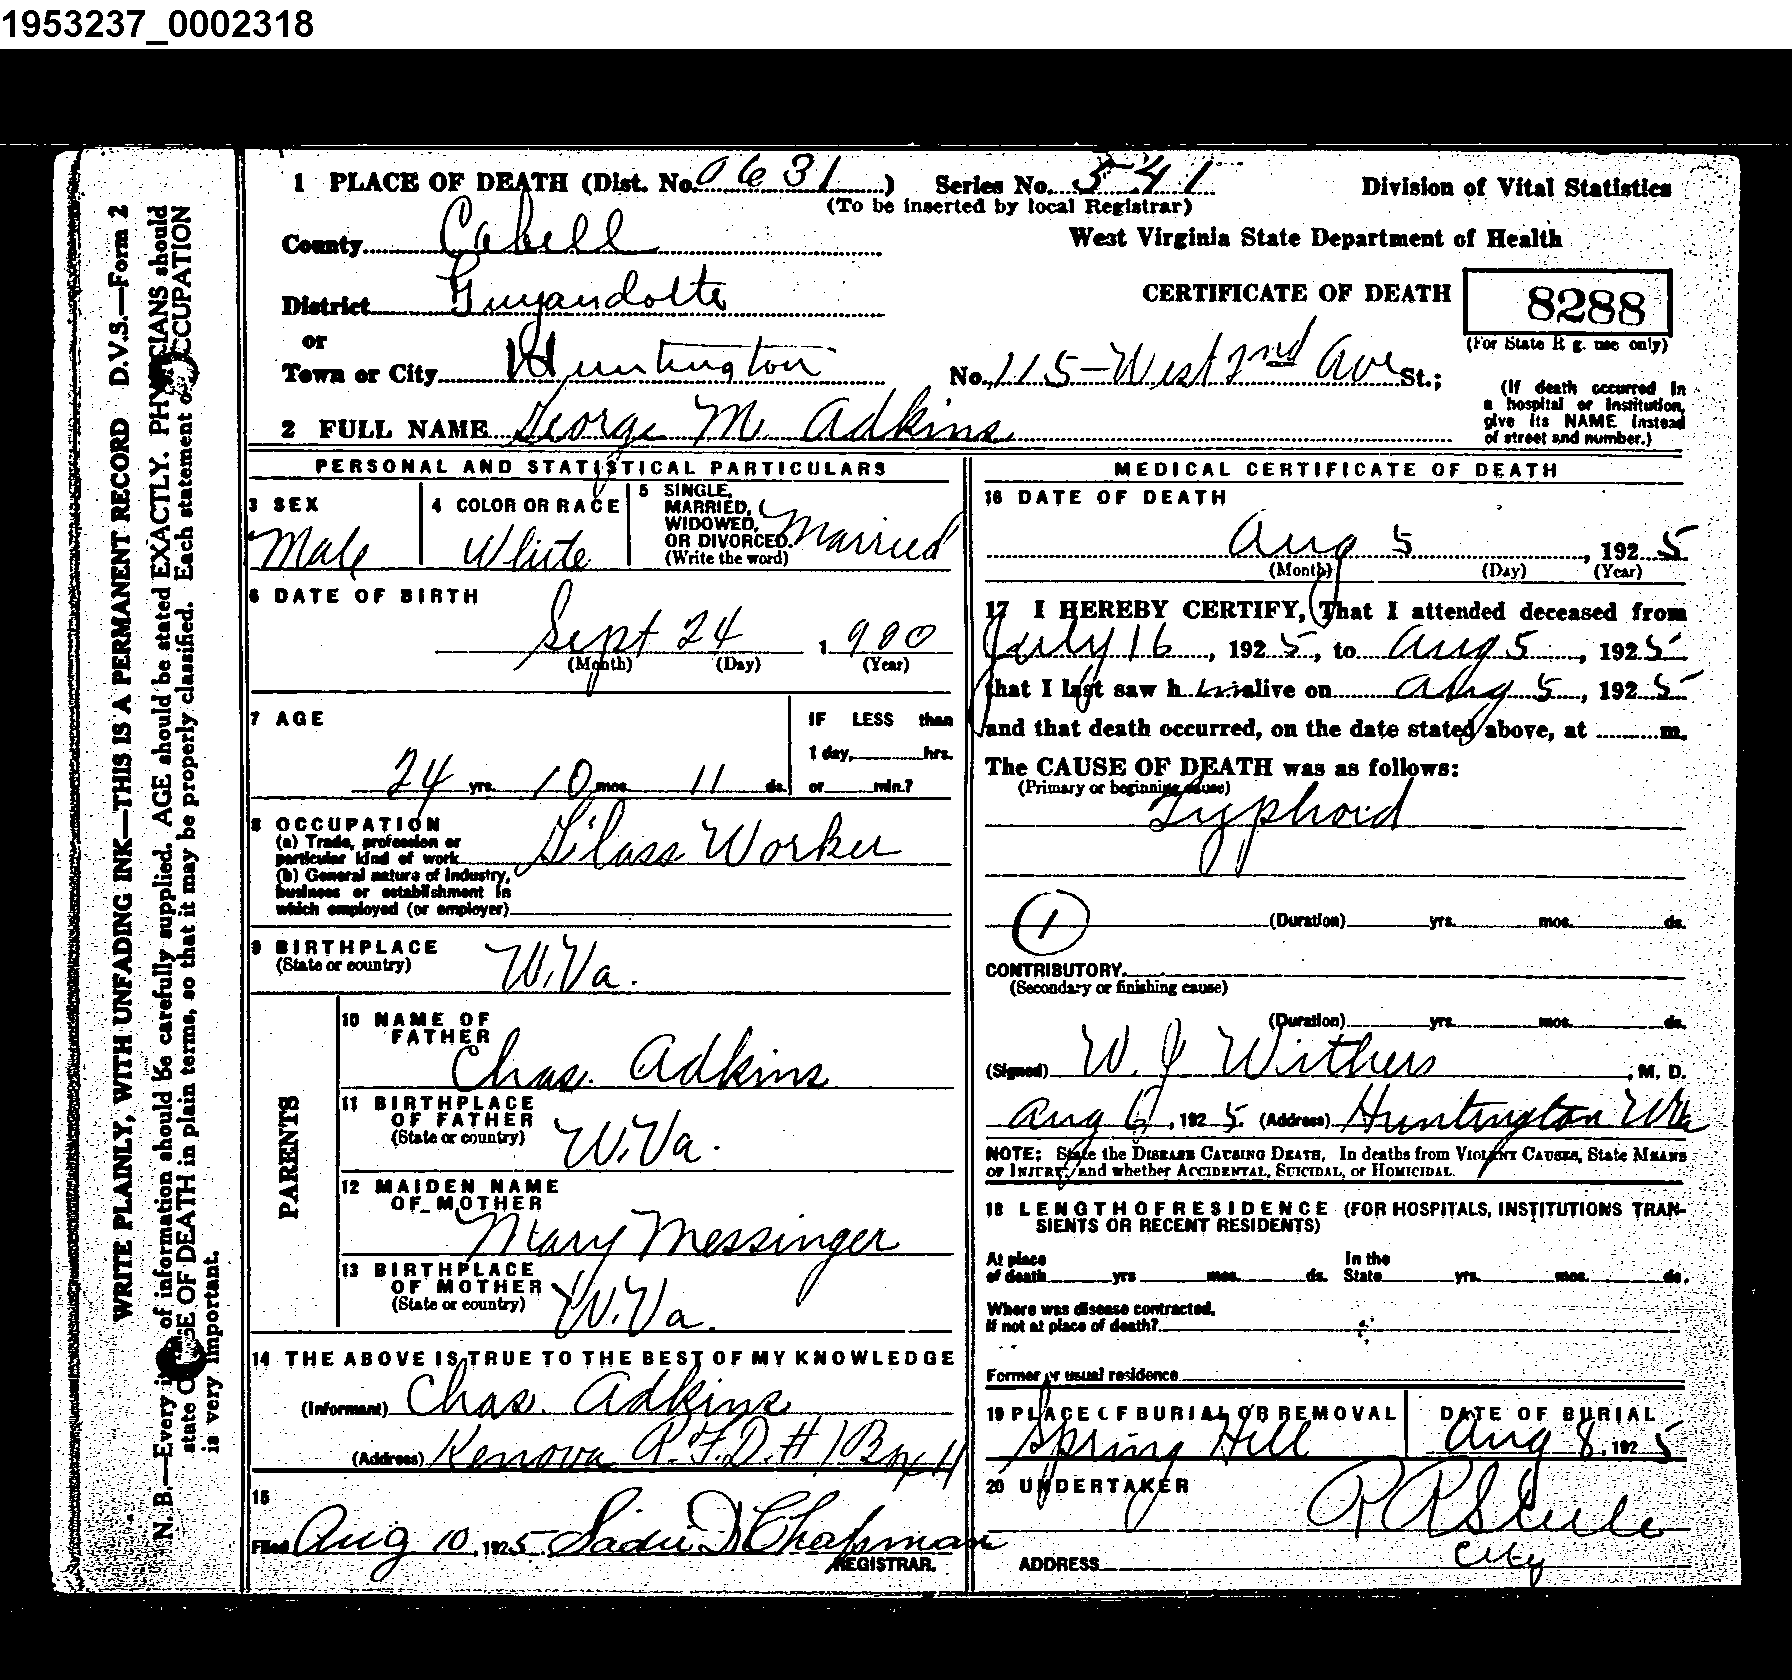 1953237_0002318
1 PLACE OF DEATH (Dist. No. 0631) Series No. 541
(To be inserted by local Registrar)
Division of Vital Statistics
County Cabell
West Virginia State Department of Health
District Guyandotte
CERTIFICATE OF DEATH
8288
(For State R g. use only)
or
Town or City Huntington
No. 115-West 2nd Ave St.;
(If death occurred in
a hospital or institution,
give its NAME instead
of street and number.)
2 FULL NAME George M. Adkins
PERSONAL AND STATISTICAL PARTICULARS
3 SEX
Male
4 COLOR OR RACE
White
5 SINGLE,
MARRIED,
WIDOWED,
OR DIVORCED.
(Write the word)
Married
6 DATE OF BIRTH
Sept 24, 1900
(Month) (Day) (Year)
7 AGE
24 yrs. 10 mos. 11 ds.
IF LESS than
1 day, hrs.
or min.?
8 OCCUPATION
(a) Trade, profession or
particular kind of work Glass Worker
(b) General nature of industry,
business or establishment in
which employed (or employer)
9 BIRTHPLACE
(State or country) W.Va.
PARENTS
10 NAME OF
FATHER
Chas. Adkins
11 BIRTHPLACE
OF FATHER
(State or country) W.Va.
12 MAIDEN NAME
OF MOTHER
Mary Messinger
13 BIRTHPLACE
OF MOTHER
(State or country) W.Va.
14 THE ABOVE IS TRUE TO THE BEST OF MY KNOWLEDGE
(Informant) Chas. Adkins
(Address) Kenova R.F.D. #1 Box 4
15
Filed Aug 10, 1925 Sadie D Chapman
REGISTRAR.
MEDICAL CERTIFICATE OF DEATH
16 DATE OF DEATH
Aug 5, 1925
(Month) (Day) (Year)
17 I HEREBY CERTIFY, That I attended deceased from
July 16, 1925, to Aug 5, 1925
that I last saw him alive on Aug 5, 1925
and that death occurred, on the date stated above, at m.
The CAUSE OF DEATH was as follows:
(Primary or beginning cause)
Typhoid
1
(Duration) yrs. mos. ds.
CONTRIBUTORY.
(Secondary or finishing cause)
(Duration) yrs. mos. ds.
(Signed) W. J Withers, M. D.
Aug 6, 1925. (Address) Huntington WVa
NOTE: State the DISEASE CAUSING DEATH, In deaths from VIOLENT CAUSES, State MEANS
OF INJURY; and whether ACCIDENTAL, SUICIDAL, or HOMICIDAL.
18 LENGTH OF RESIDENCE (FOR HOSPITALS, INSTITUTIONS TRAN-
SIENTS OR RECENT RESIDENTS)
At place In the
of death yrs mos. ds. State yrs. mos. ds.
Where was disease contracted,
if not at place of death?
Former or usual residence
19 PLACE OF BURIAL OR REMOVAL
Spring Hill
DATE OF BURIAL
Aug 8, 1925
20 UNDERTAKER
R R Steele
ADDRESS City
WRITE PLAINLY, WITH UNFADING INK—THIS IS A PERMANENT RECORD D.V.S.—Form 2
N. B.—Every item of information should be carefully supplied. AGE should be stated EXACTLY. PHYSICIANS should
state CAUSE OF DEATH in plain terms, so that it may be properly classified. Each statement of OCCUPATION
is very important.